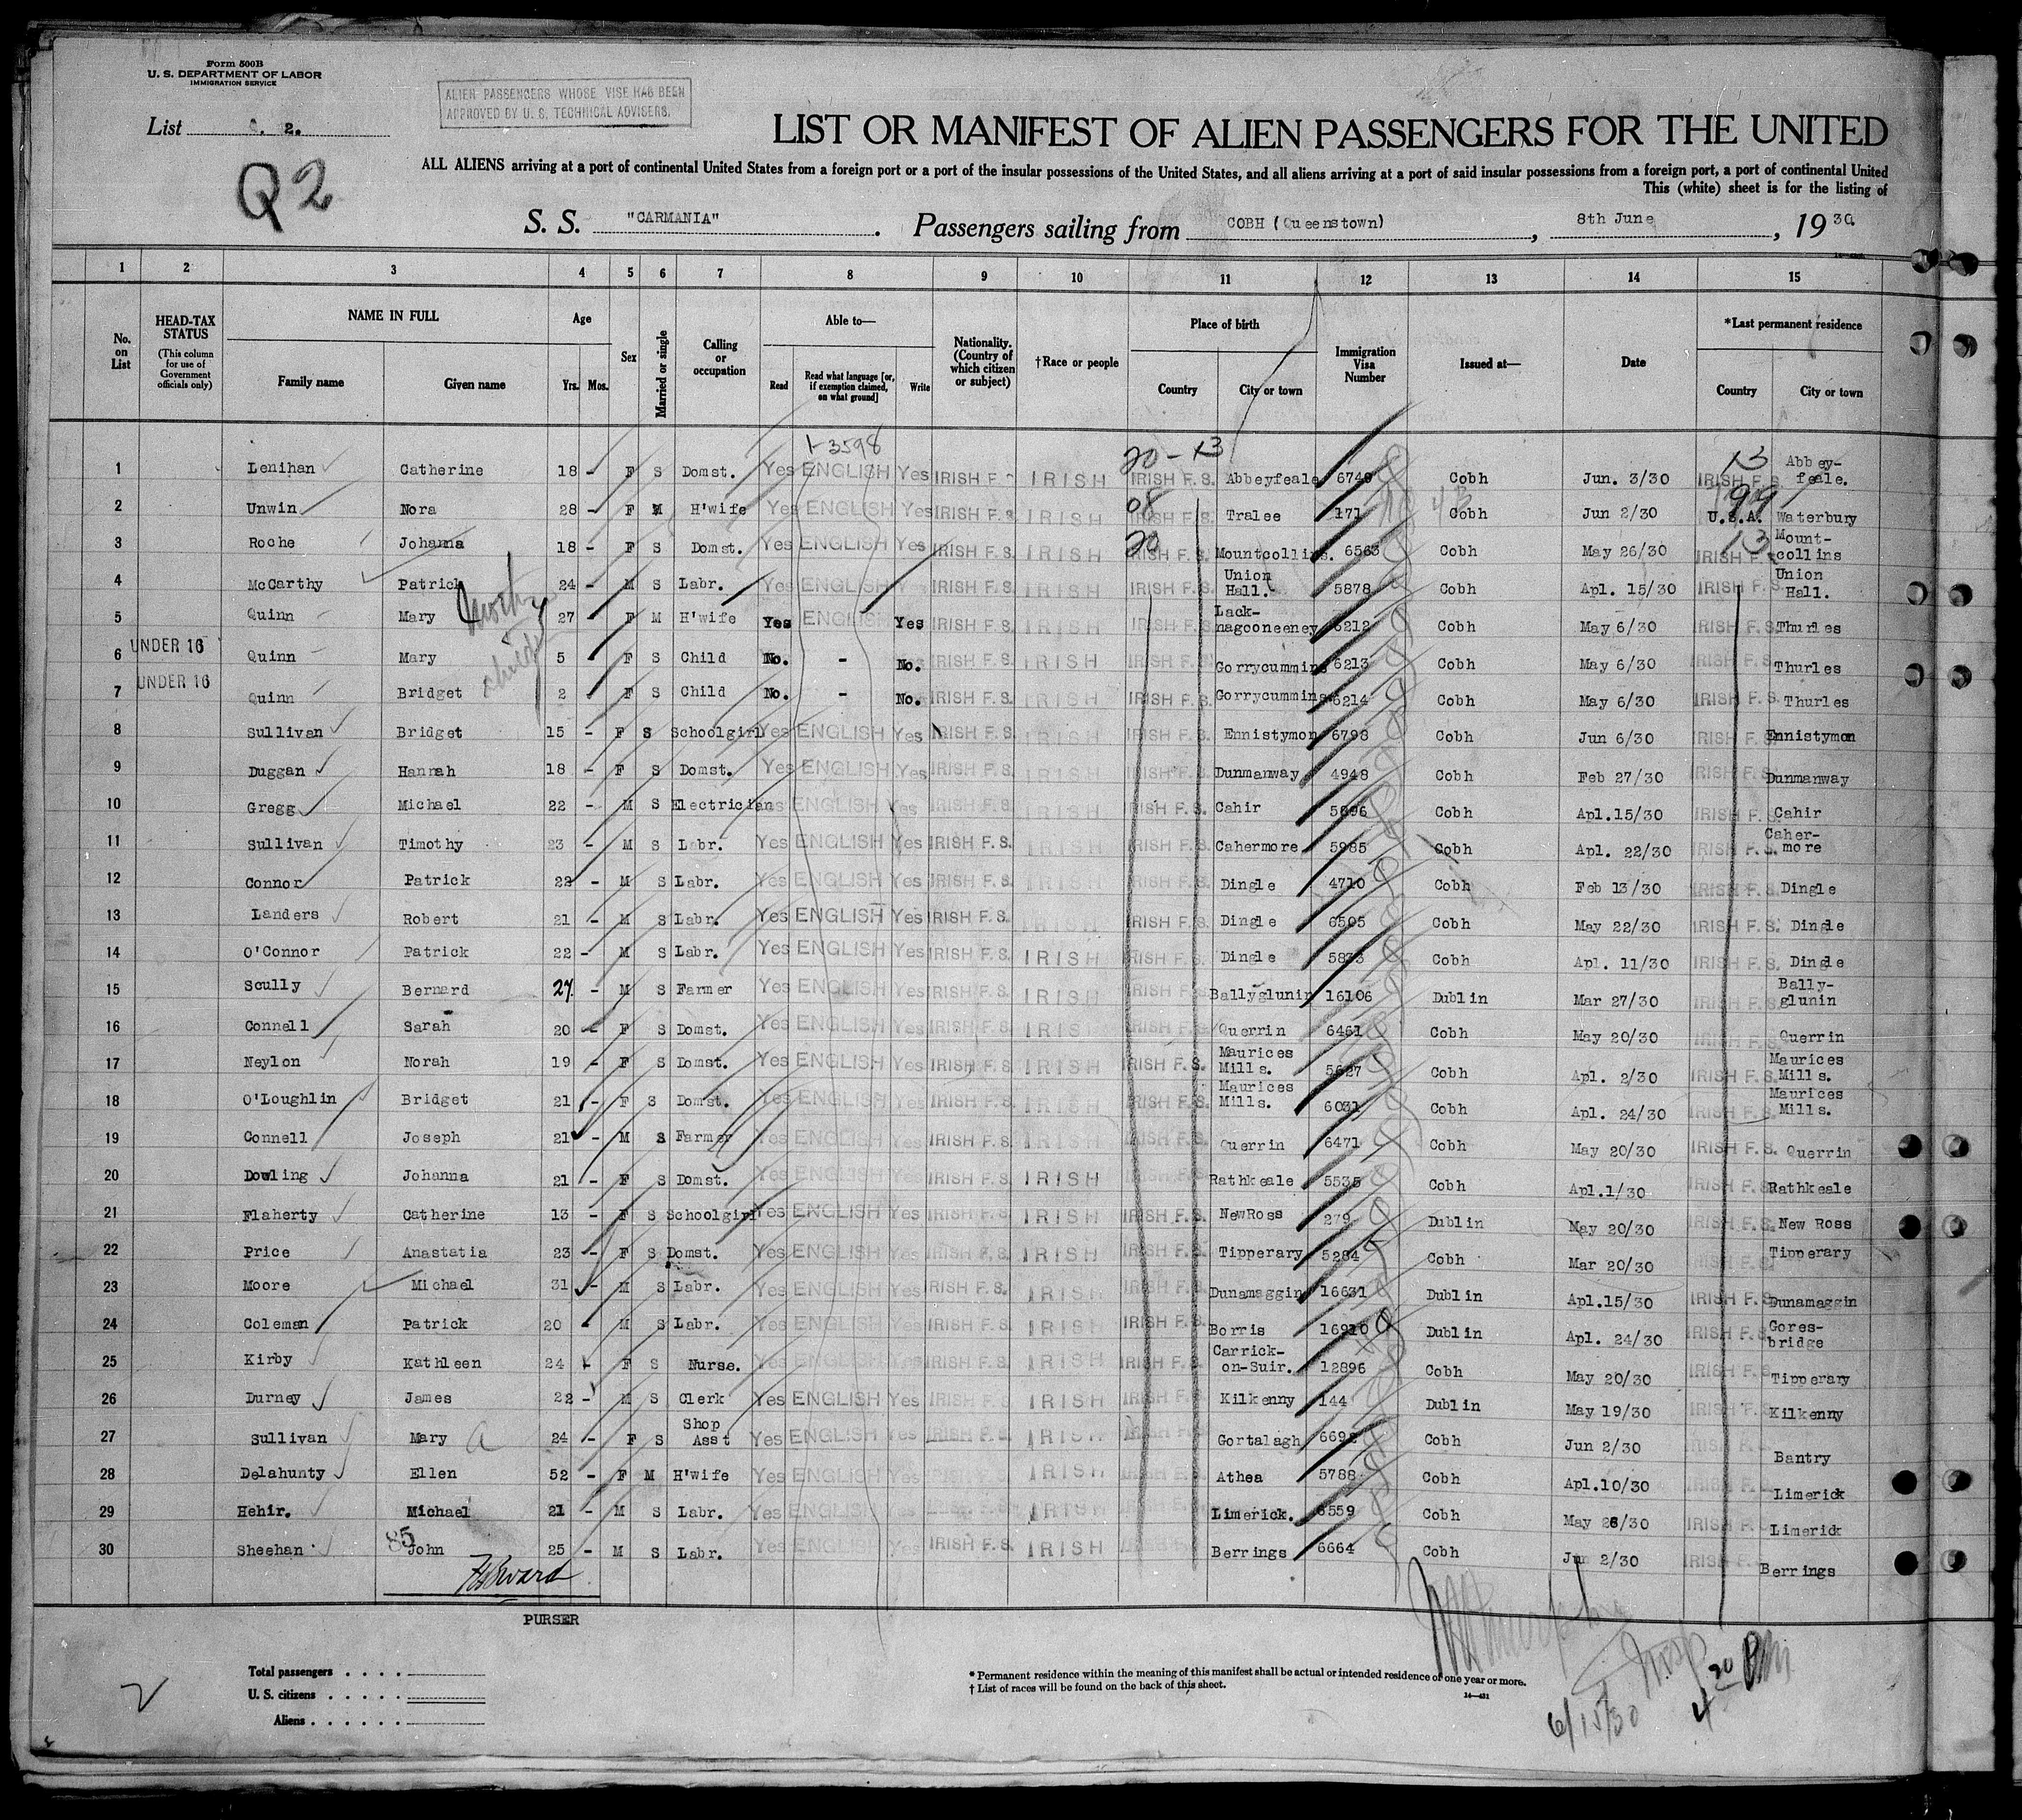 Form 500B
U. S. DEPARTMENT OF LABOR
IMMIGRATION SERVICE
ALIEN PASSENGERS WHOSE VISE HAS BEEN
APPROVED BY U. S. TECHNICAL ADVISERS.
List 2.
Q2
LIST OR MANIFEST OF ALIEN PASSENGERS FOR THE UNITED
ALL ALIENS arriving at a port of continental United States from a foreign port or a port of the insular possessions of the United States, and all aliens arriving at a port of said insular possessions from a foreign port, a port of continental United
This (white) sheet is for the listing of
S. S. "CARMANIA". Passengers sailing from COBH (Queenstown), 8th June, 1930
1 2 3 4 5 6 7 8 9 10 11 12 13 14 15
No. on List
HEAD-TAX STATUS (This column for use of Government officials only)
NAME IN FULL
Family name
Given name
Age
Yrs. Mos.
Sex
Married or single
Calling or occupation
Able to—
Read
Read what language [or, if exemption claimed, on what ground]
Write
Nationality. (Country of which citizen or subject)
†Race or people
Place of birth
Country
City or town
Immigration Visa Number
Issued at—
Date
*Last permanent residence
Country
City or town
1-3598
20-13
13
1 Lenihan Catherine 18 - F S Domst. Yes ENGLISH Yes IRISH F.S. IRISH IRISH F.S. Abbeyfeale 6749 Cobh Jun. 3/30 IRISH F.S. Abbey-feale.
08
99
2 Unwin Nora 28 - F M H'wife Yes ENGLISH Yes IRISH F.S. IRISH IRISH F.S. Tralee 171 Cobh Jun 2/30 U.S.A. Waterbury
20
13
3 Roche Johanna 18 - F S Domst. Yes ENGLISH Yes IRISH F.S. IRISH IRISH F.S. Mountcollins. 6563 Cobh May 26/30 IRISH F.S. Mount-collins
4 McCarthy Patrick 24 - M S Labr. Yes ENGLISH Yes IRISH F.S. IRISH IRISH F.S. Union Hall. 5878 Cobh Apl. 15/30 IRISH F.S. Union Hall.
5 Quinn Mary 27 - F M H'wife Yes ENGLISH Yes IRISH F.S. IRISH IRISH F.S. Lack-nagooneeney 6212 Cobh May 6/30 IRISH F.S. Thurles
UNDER 16
6 Quinn Mary 5 - F S Child No. - No. IRISH F.S. IRISH IRISH F.S. Gorrycummins 6213 Cobh May 6/30 IRISH F.S. Thurles
UNDER 16
7 Quinn Bridget 2 - F S Child No. - No. IRISH F.S. IRISH IRISH F.S. Gorrycummins 6214 Cobh May 6/30 IRISH F.S. Thurles
8 Sullivan Bridget 15 - F S Schoolgirl Yes ENGLISH Yes IRISH F.S. IRISH IRISH F.S. Ennistymon 6798 Cobh Jun 6/30 IRISH F.S. Ennistymon
9 Duggan Hannah 18 - F S Domst. Yes ENGLISH Yes IRISH F.S. IRISH IRISH F.S. Dunmanway 4948 Cobh Feb 27/30 IRISH F.S. Dunmanway
10 Gregg Michael 22 - M S Electrician Yes ENGLISH Yes IRISH F.S. IRISH IRISH F.S. Cahir 5896 Cobh Apl.15/30 IRISH F.S. Cahir
11 Sullivan Timothy 23 - M S Labr. Yes ENGLISH Yes IRISH F.S. IRISH IRISH F.S. Cahermore 5985 Cobh Apl. 22/30 IRISH F.S. Caher-more
12 Connor Patrick 22 - M S Labr. Yes ENGLISH Yes IRISH F.S. IRISH IRISH F.S. Dingle 4710 Cobh Feb 13/30 IRISH F.S. Dingle
13 Landers Robert 21 - M S Labr. Yes ENGLISH Yes IRISH F.S. IRISH IRISH F.S. Dingle 6505 Cobh May 22/30 IRISH F.S. Dingle
14 O'Connor Patrick 22 - M S Labr. Yes ENGLISH Yes IRISH F.S. IRISH IRISH F.S. Dingle Cobh Apl. 11/30 IRISH F.S. Dingle
15 Scully Bernard 27 - M S Farmer Yes ENGLISH Yes IRISH F.S. IRISH IRISH F.S. Ballyglunin 16106 Dublin Mar 27/30 IRISH F.S. Bally-glunin
16 Connell Sarah 20 - F S Domst. Yes ENGLISH Yes IRISH F.S. IRISH IRISH F.S. Querrin 6461 Cobh May 20/30 IRISH F.S. Querrin
17 Neylon Norah 19 - F S Domst. Yes ENGLISH Yes IRISH F.S. IRISH IRISH F.S. Maurices Mills. 5627 Cobh Apl. 2/30 IRISH F.S. Maurices Mills.
18 O'Loughlin Bridget 21 - F S Domst. Yes ENGLISH Yes IRISH F.S. IRISH IRISH F.S. Maurices Mills. 6031 Cobh Apl. 24/30 IRISH F.S. Maurices Mills.
19 Connell Joseph 21 - M S Farmer Yes ENGLISH Yes IRISH F.S. IRISH IRISH F.S. Querrin 6471 Cobh May 20/30 IRISH F.S. Querrin
20 Dowling Johanna 21 - F S Domst. Yes ENGLISH Yes IRISH F.S. IRISH IRISH F.S. Rathkeale 5535 Cobh Apl.1/30 IRISH F.S. Rathkeale
21 Flaherty Catherine 13 - F S Schoolgirl Yes ENGLISH Yes IRISH F.S. IRISH IRISH F.S. NewRoss 279 Dublin May 20/30 IRISH F.S. New Ross
22 Price Anastatia 23 - F S Domst. Yes ENGLISH Yes IRISH F.S. IRISH IRISH F.S. Tipperary 5284 Cobh Mar 20/30 IRISH F.S. Tipperary
23 Moore Michael 31 - M S Labr. Yes ENGLISH Yes IRISH F.S. IRISH IRISH F.S. Dunamaggin 16631 Dublin Apl.15/30 IRISH F.S. Dunamaggin
24 Coleman Patrick 20 - M S Labr. Yes ENGLISH Yes IRISH F.S. IRISH IRISH F.S. Borris 16910 Dublin Apl. 24/30 IRISH F.S. Gores-bridge
25 Kirby Kathleen 24 - F S Nurse. Yes ENGLISH Yes IRISH F.S. IRISH IRISH F.S. Carrick-on-Suir. 12896 Cobh May 20/30 IRISH F.S. Tipperary
26 Durney James 22 - M S Clerk Yes ENGLISH Yes IRISH F.S. IRISH IRISH F.S. Kilkenny 144 Dublin May 19/30 IRISH F.S. Kilkenny
27 Sullivan Mary a 24 - F S Shop Asst Yes ENGLISH Yes IRISH F.S. IRISH Gortalagh Cobh Jun 2/30 IRISH F.S. Bantry
28 Delahunty Ellen 52 - F M H'wife Yes ENGLISH Yes IRISH IRISH F.S. Athea 5788 Cobh Apl.10/30 Limerick
29 Hehir. Michael 21 - M S Labr. Yes ENGLISH Yes IRISH IRISH F.S. Limerick. 6559 Cobh May 26/30 IRISH F.S. Limerick
30 Sheehan John 25 - M S Labr. Yes ENGLISH Yes IRISH F.S. IRISH Berrings 6664 Cobh Jun 2/30 IRISH F.S. Berrings
85
PURSER
Total passengers . . . .
U. S. citizens . . . . .
Aliens . . . . . .
* Permanent residence within the meaning of this manifest shall be actual or intended residence of one year or more.
† List of races will be found on the back of this sheet.
14—431
Insp
6/15/30
4 20 PM